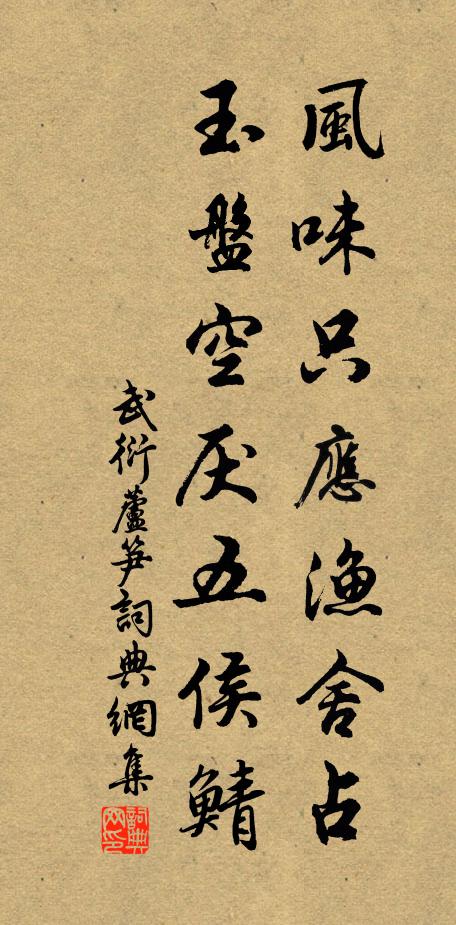 風味只應漁舍占
玉盤空厌五侯鯖
武衍蘆笋詞典網集
詞典網印